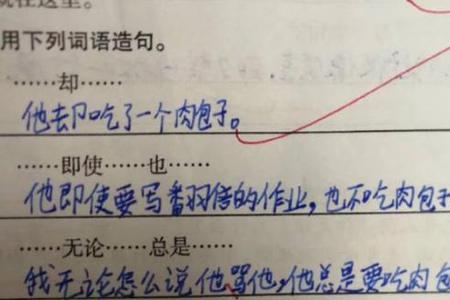 用下列词语造句。
……却……
他却吃了一个肉包子。
……即使……也……
他即使要写翻倍的作业，也不吃肉包子
……无论……总是……
我无论怎么说他骂他，他总是要吃肉包